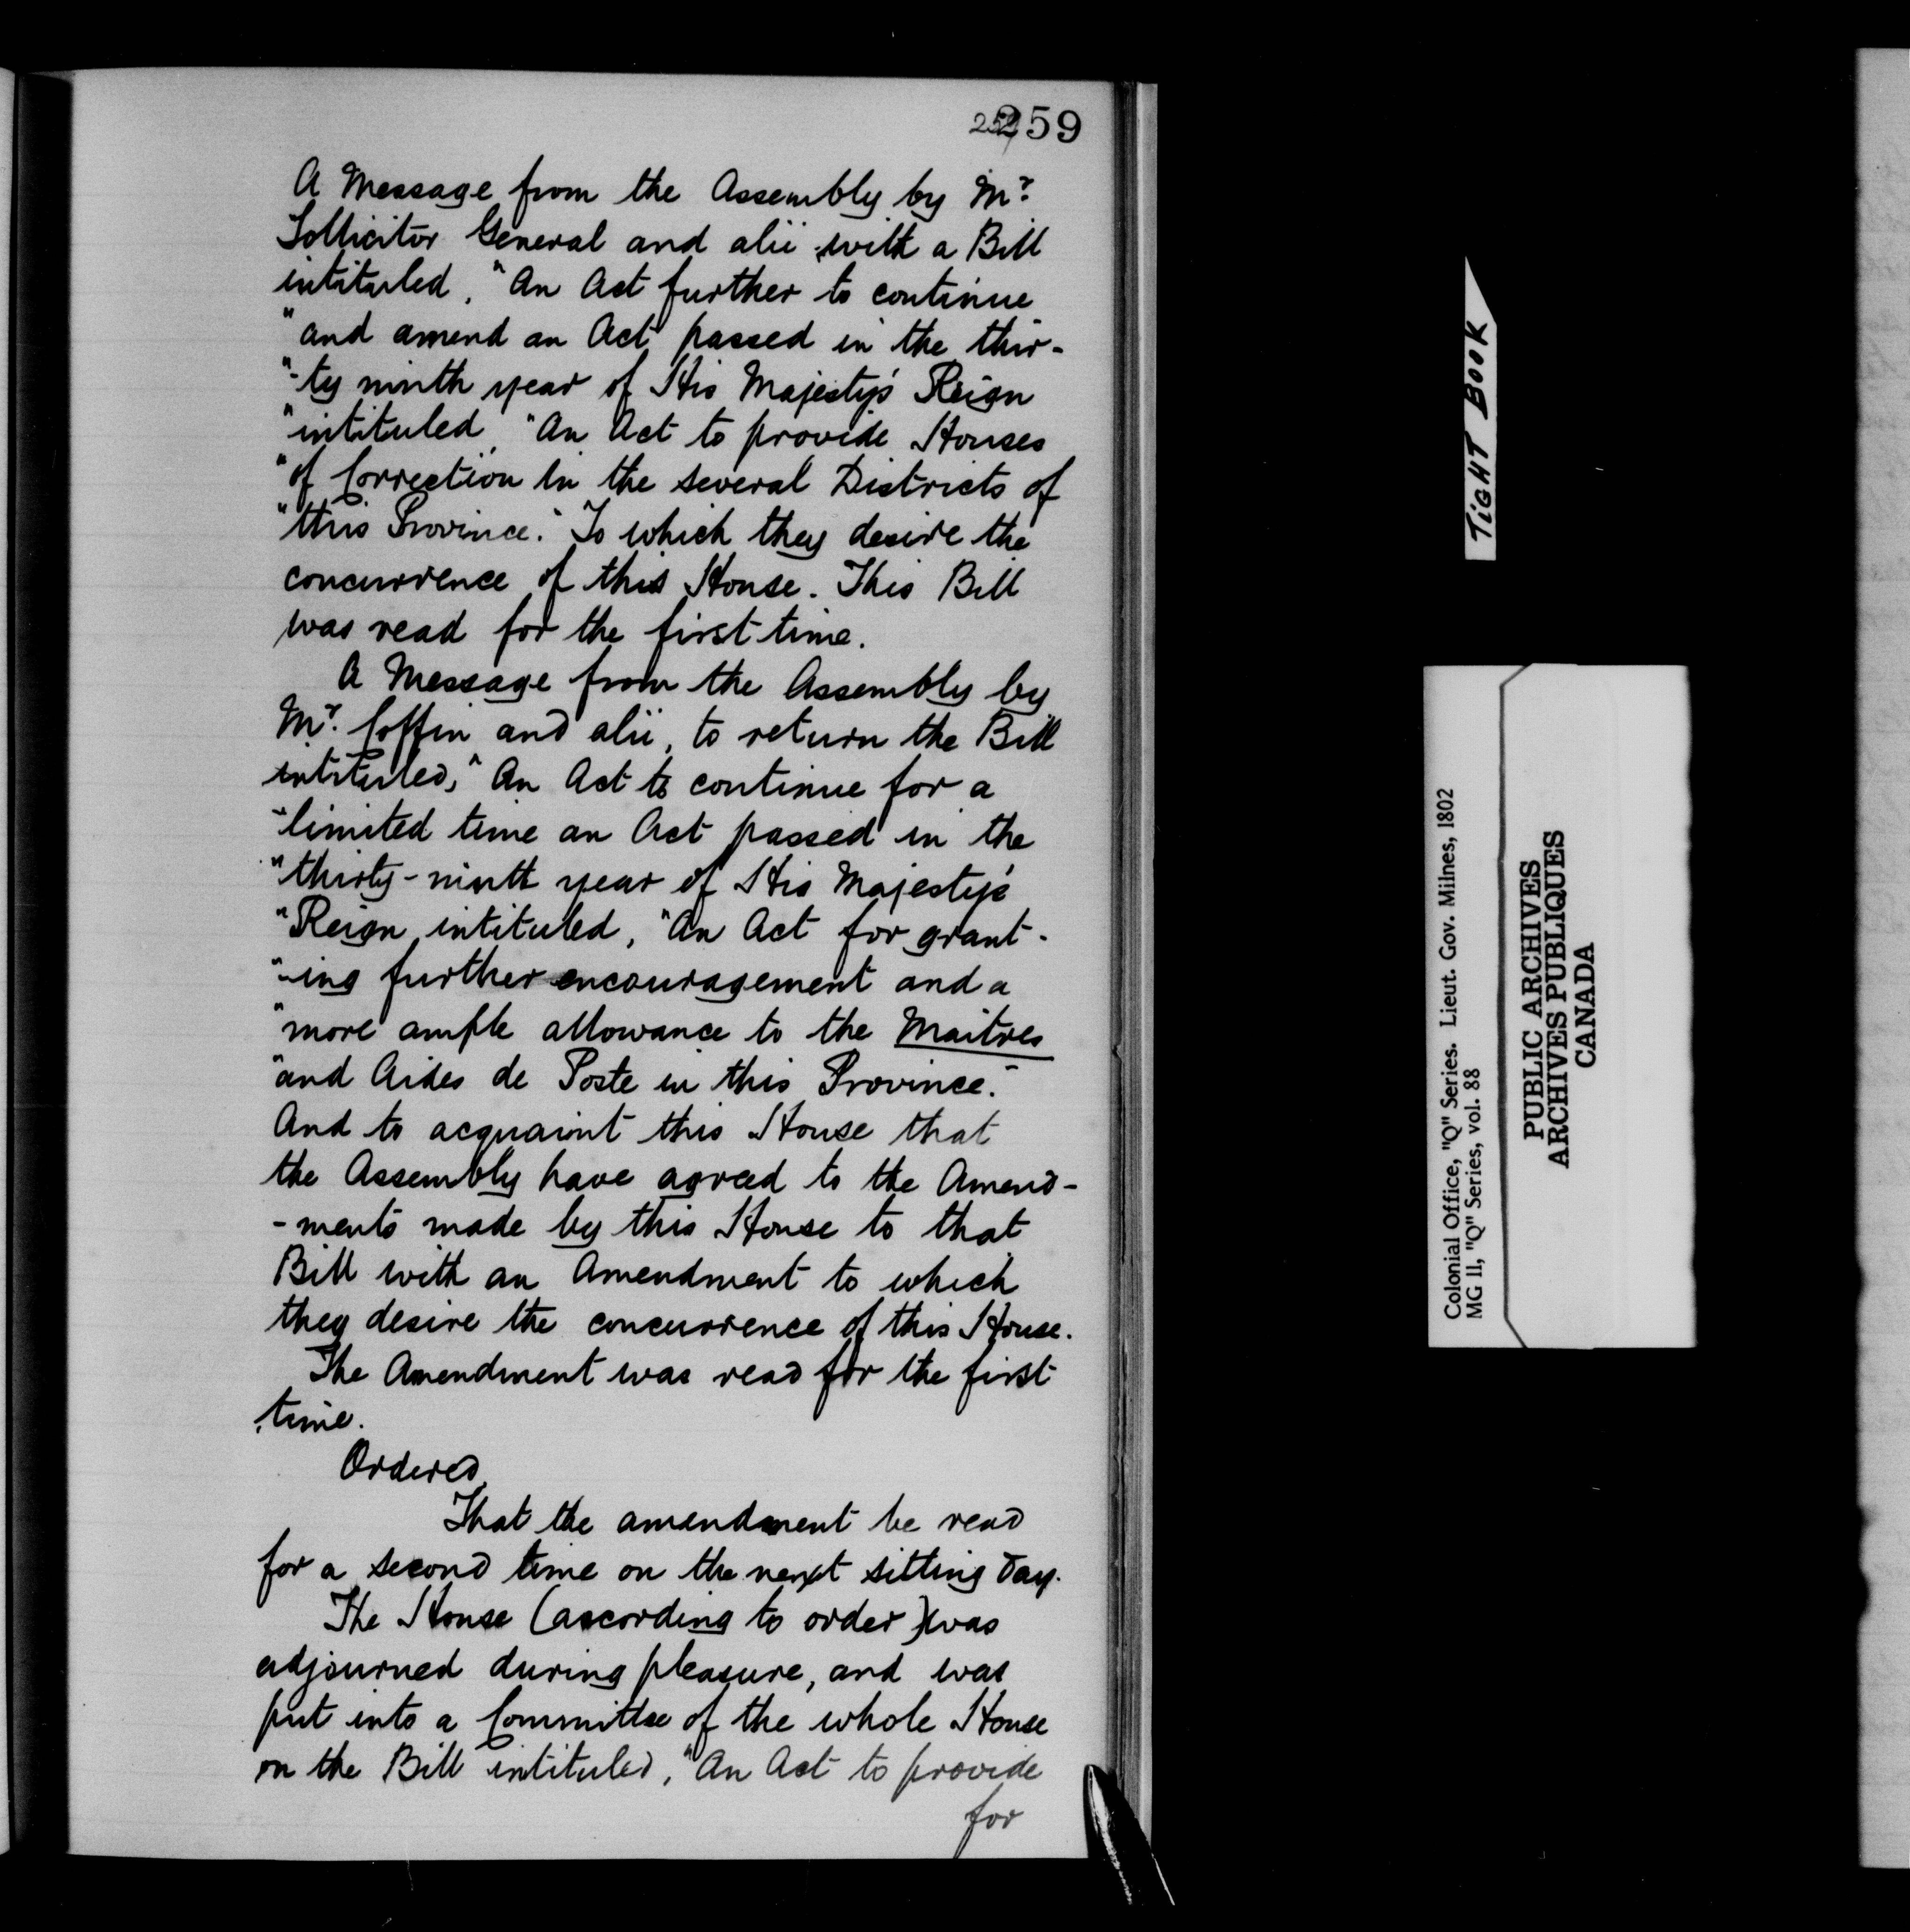 259
A Message from the Assembly by Mr.
Sollicitor General and alii with a Bill
intituled, "An Act further to continue
"and amend an Act passed in the thir-
"-ty ninth year of His Majesty's Reign
"intituled, "An Act to provide Houses
"of Correction in the several Districts of
"this Province." To which they desire the
concurrence of this House. This Bill
was read for the first time.
A Message from the Assembly by
Mr. Coffin and alii, to return the Bill
intituled, "An Act to continue for a
"limited time an Act passed in the
"thirty-ninth year of His Majesty's
"Reign intituled, "An Act for grant-
"-ing further encouragement and a
"more ample allowance to the Maitres
"and Aides de Poste in this Province."
And to acquaint this House that
the Assembly have agreed to the Amend-
-ments made by this House to that
Bill with an Amendment to which
they desire the concurrence of this House.
The Amendment was read for the first
time.
Ordered,
That the amendment be read
for a second time on the next sitting Day.
The House (according to order) was
adjourned during pleasure, and was
put into a Committee of the whole House
on the Bill intituled, "An Act to provide
for
TIGHT BOOK
Colonial Office, "Q" Series. Lieut. Gov. Milnes, 1802
MG 11, "Q" Series, vol. 88
PUBLIC ARCHIVES
ARCHIVES PUBLIQUES
CANADA